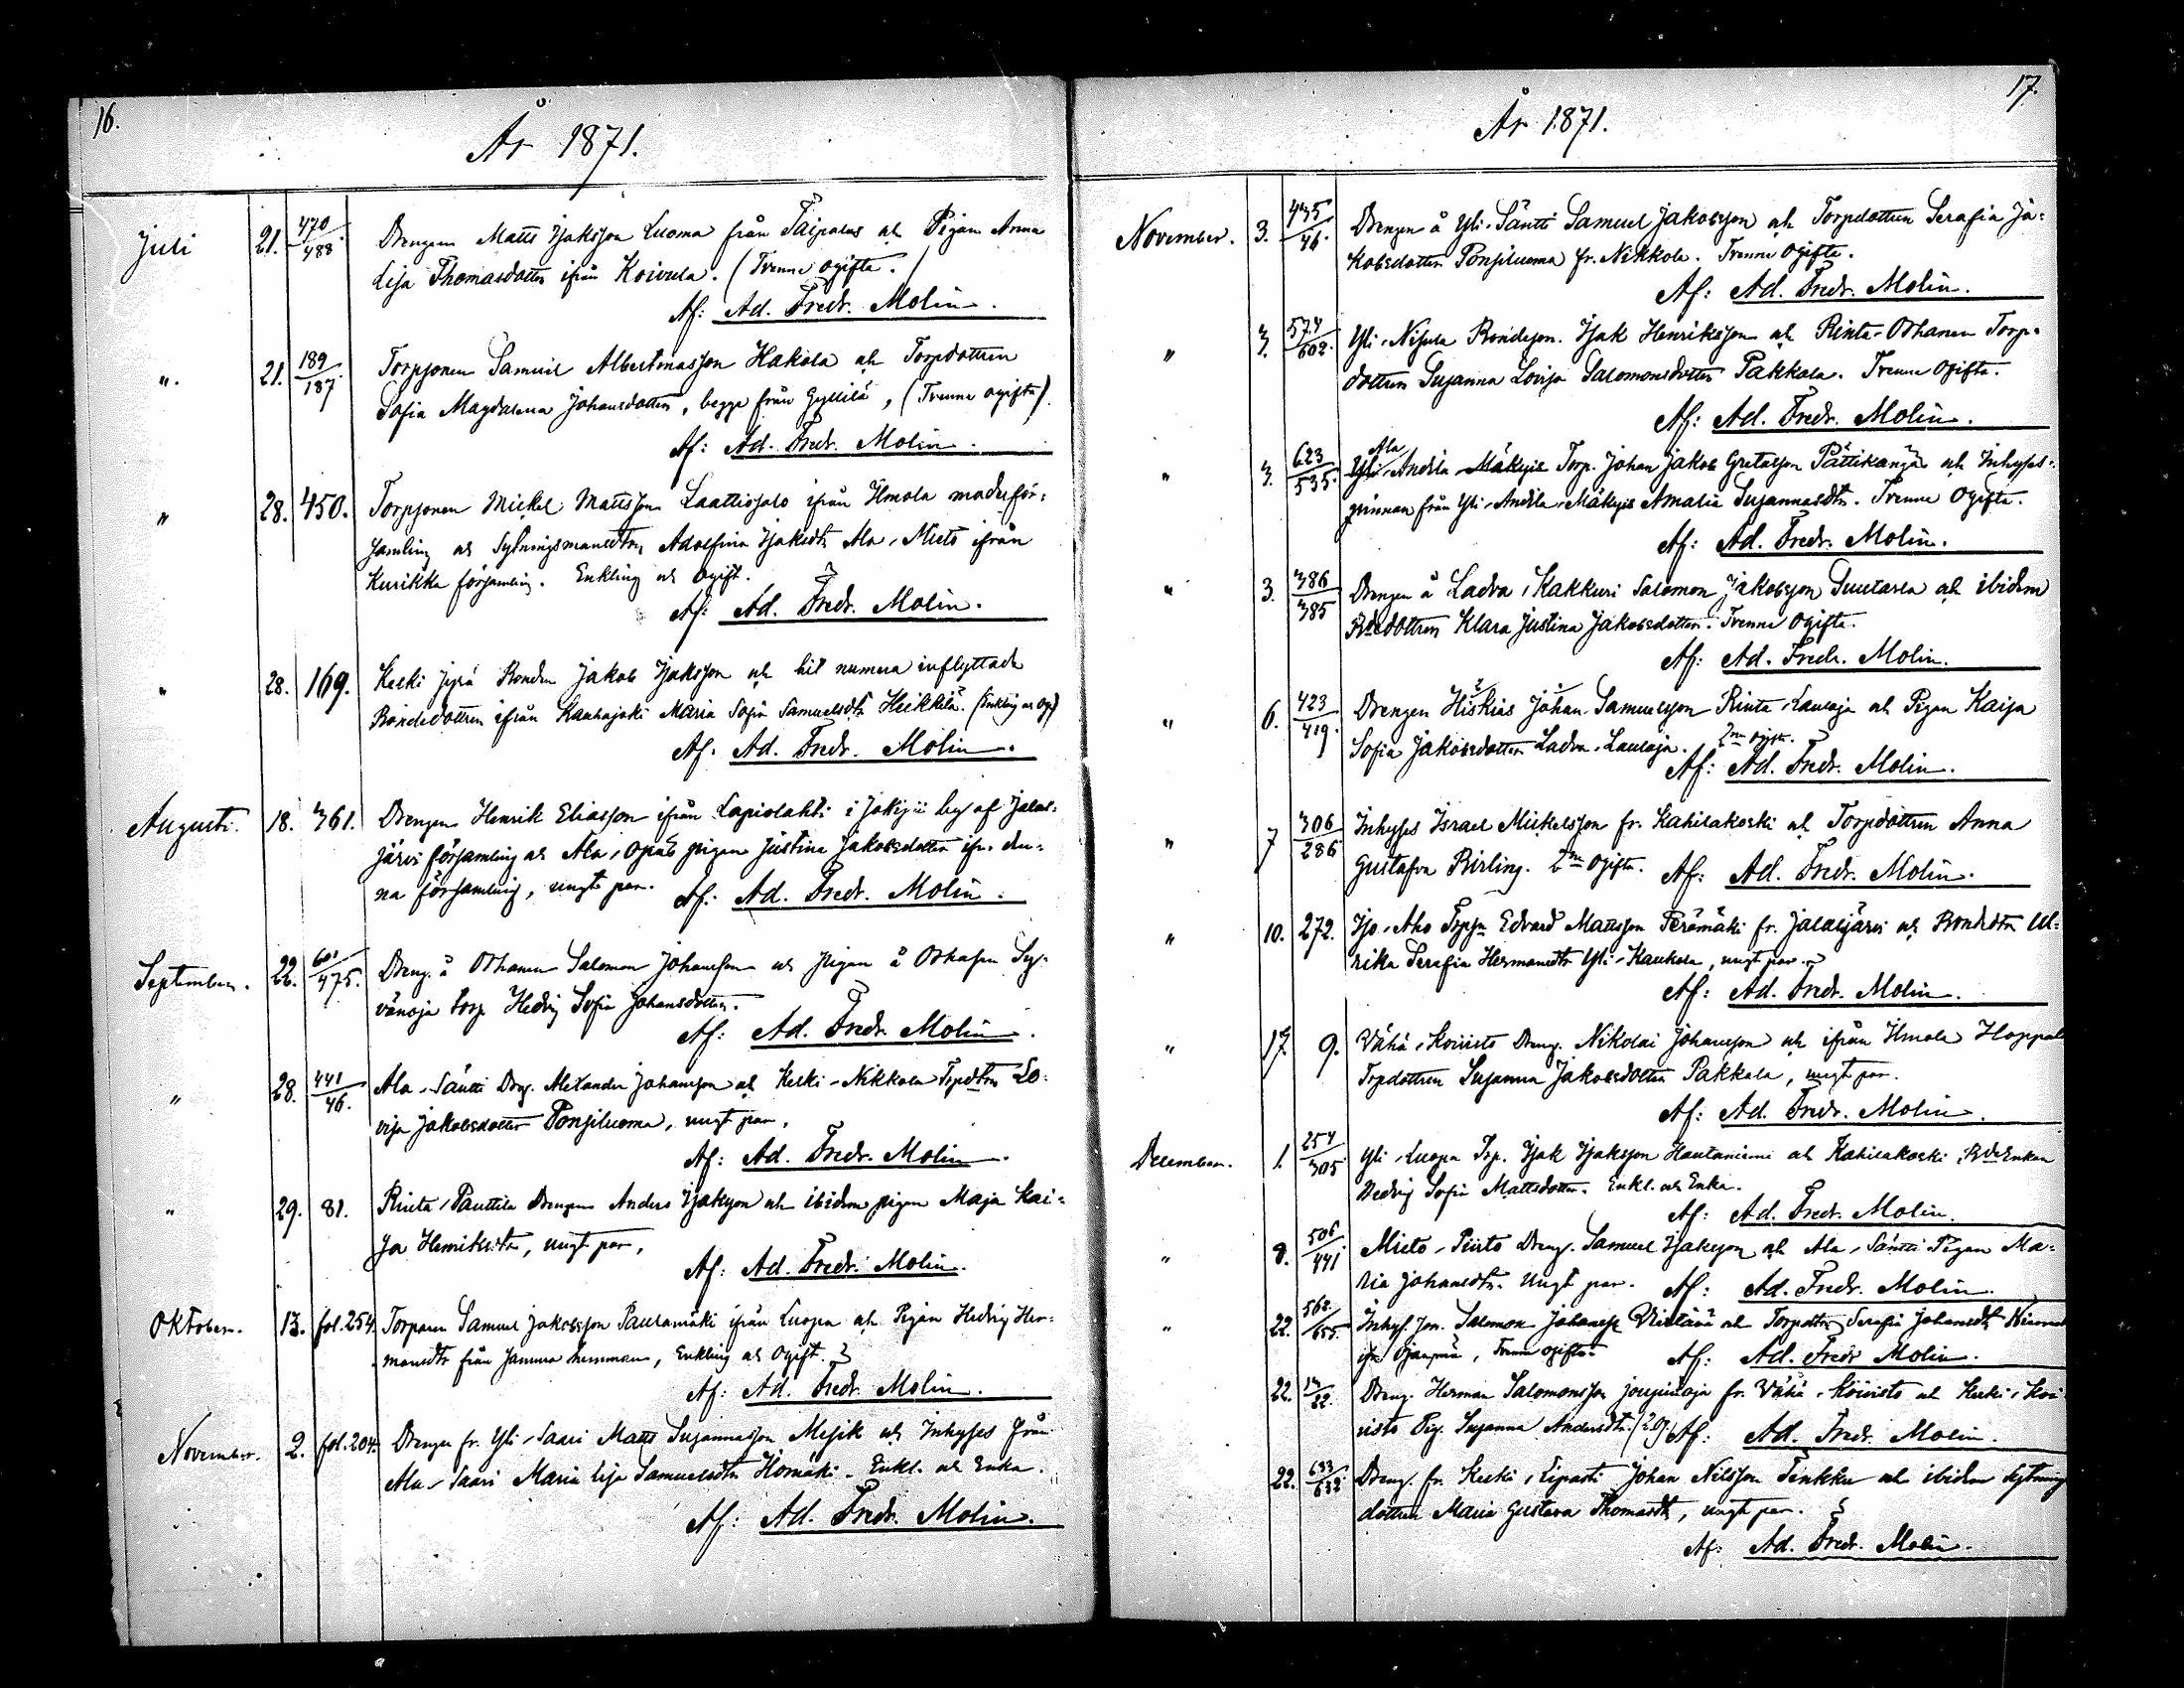 16.
År 1871.
Juli 21. 470/488. Drengen Matts Isaksson Luoma från Taipalus och Pigan Anna
Lisa Thomasdotter ifrån Koivula. (Tvenne ogifte.)
Af: Ad. Fredr. Molin.
". 21. 189/187. Torpsonen Samuel Albertinasson Hakola och Torpdottren
Sofia Magdalena Johansdotter, begge från Gyllilä, (Tvenne ogifta).
Af: Ad. Fredr. Molin.
" 28. 450. Torpsonen Mickel Mattsson Laattiosalo ifrån Ilmola moderför-
samling och Sytningsmansdtrn Adolfina Isaksdtr Ala-Mieto ifrån
Kurikka församling. Enkling och Ogift.
Af: Ad. Fredr. Molin.
" 28. 169. Keski Jyrä Bonden Jakob Isaksson och hit numera inflyttade
Bondedottren ifrån Kauhajoki Maria Sofia Samuelsdtr Heikkilä. (Enkling och Og.)
Af. Ad. Fredr. Molin.
Augusti. 18. 361. Drengen Henrik Eliasson ifrån Lapiolahti i Jokipii by af Jalas-
järvi församling och Ala, pigan Justina Jakobsdotter ifr. den-
na församling, ungt par. Af: Ad. Fredr. Molin.
September. 22. 601/475. Dreng. å Orhanen Salomon Johansson och pigan å
vänoja torp Hedvig Sofia Johansdotter.
Af: Ad. Fredr. Molin.
" 28. 441/46. Ala-Säntti Drng. Alexander Johansson och Keski-Nikkola Torpdtrn Lo-
visa Jakobsdotter Ponsiluoma, ungt par.
Af: Ad. Fredr. Molin.
" 29. 81. Rinta-Panttila Drengen Anders Isaksson och ibidem pigan Maja Kai-
sa Henriksdtr, ungt par,
Af: Ad. Fredr. Molin.
Oktober. 13. fol.254. Torparen Samuel Jakobsson Pautamäki ifrån Luopa och Pigan Hedvig Her-
mansdtr från samma hemman, Enkling och Ogift.
Af: Ad. Fredr. Molin.
November. 2. fol.204. Drengen fr. Yli-Saari Matts Susannasson Mesik och Inhyses från
Ala-Saari Maria Lisa Samuelsdtr Homäki. Enkl. och Enka.
Af: Ad. Fredr. Molin.
17.
År 1871.
November. 3. 435/46. Drengen å Yli-Säntti Samuel Jakobsson och Torpdottren Serafia Ja-
kobsdotter Ponsiluoma fr. Nikkola. Tvenne ogifte.
Af: Ad. Fredr. Molin.
" 3. 574/602. Yli-Nisula Bondeson. Isak Henriksson och Rinta-Orhanen Torp-
dottren Susanna Lovisa Salomonsdotter Pakkala. Tvenne Ogifte.
Af: Ad. Fredr. Molin.
Ala
" 3. 623/535. Yli-Andila-Mäkipä Torp. Johan Jakob Gretasson Pättikangas och Inhyses-
pinnan från Yli-Andila-Mäkipä Amalia Susannasdtr. Tvenne Ogifte.
Af: Ad. Fredr. Molin.
" 3. 386/385 Drengen å Ladva-Kakkuri Salomon Jakobsson Suutarla och ibidem
Bdedottren Klara Justina Jakobsdotter. Tvenne ogifte.
Af: Ad. Fredr. Molin.
" 6. 423/419. Drengen Hiskias Johan Samuelsson Rinta-Lauloja och Pigan Kaisa
Sofia Jakobsdotter Ladva-Lauloja. 2ne ogifta.
Af: Ad. Fredr. Molin.
" 7 306/286 Inhyses Israel Mickelsson fr. Kahilakoski och Torpdottren Anna
Gustafva Birling. 2ne Ogifta. Af: Ad. Fredr. Molin.
" 10. 272. Iso-Aho Torpsn Edvard Mattsson Perämäki fr. Jalasjärvi och Bondedtrn Ul-
rika Serafia Hermansdtr Yli-Kaukola, ungt par.
Af: Ad. Fredr. Molin.
" 17. 9. Vähä-Koivisto Dreng. Nikolai Johansson och ifrån Ilmola Hoppala
Torpdottren Susanna Jakobsdotter Pakkala, ungt par.
Af: Ad. Fredr. Molin.
December. 1. 254/305 Yli-Luopa Trp. Isak Isaksson Hautaniemi och Kahilakoski Bde Enkan
Hedvig Sofia Mattsdotter. Enkl. och Enka.
Af: Ad. Fredr. Molin.
" 8. 506/441 Mieto-Piirto Dreng. Samuel Isaksson och Ala-Säntti Pigan Ma-
ria Johansdtr. Ungt par. Af: Ad. Fredr. Molin.
" 22. 562/655. Inhys. Jon. Salomon Johansson och Torpdttrn Serafia Johansdtr
Tvenne ogifta. Af: Ad. Fredr Molin.
22. Dreng. Herman Salomonsson Joupinoja fr. Vähä-Koivisto och Keski-Koi-
visto Pig. Susanna Andersdtr. (2 og.) Af: Ad. Fredr. Molin.
22. 633/632 Dreng. fr. Keski-Liparti Johan Nilsson Tenkku och ibidem sytnings
dottren Maria Gustava Thomasdtr, ungt par.
Af: Ad. Fredr. Molin.